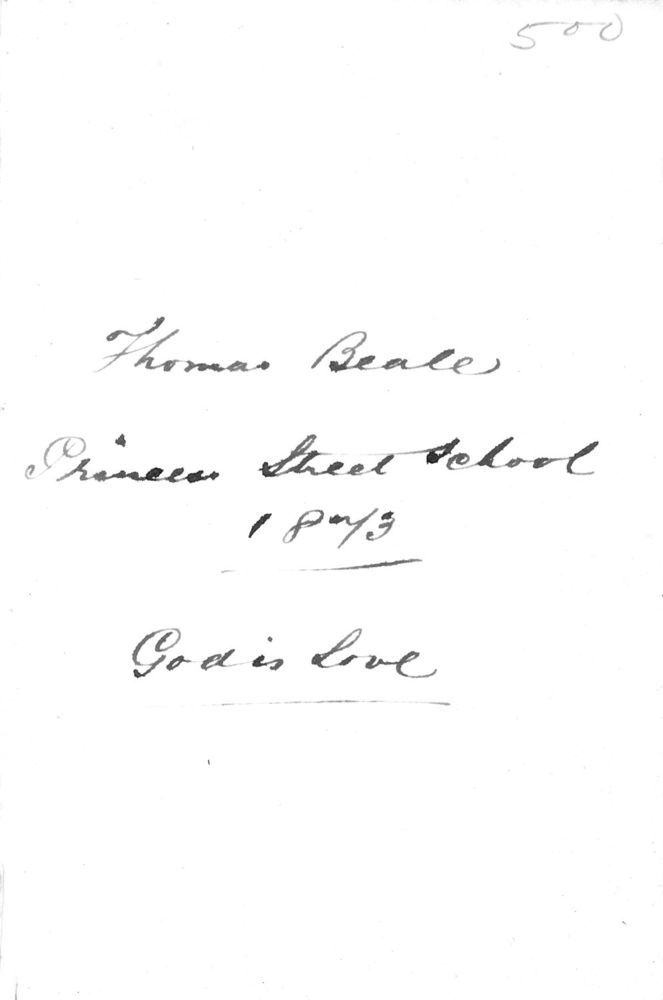 500
Thomas Beale
Princess Street School
1873
God is Love